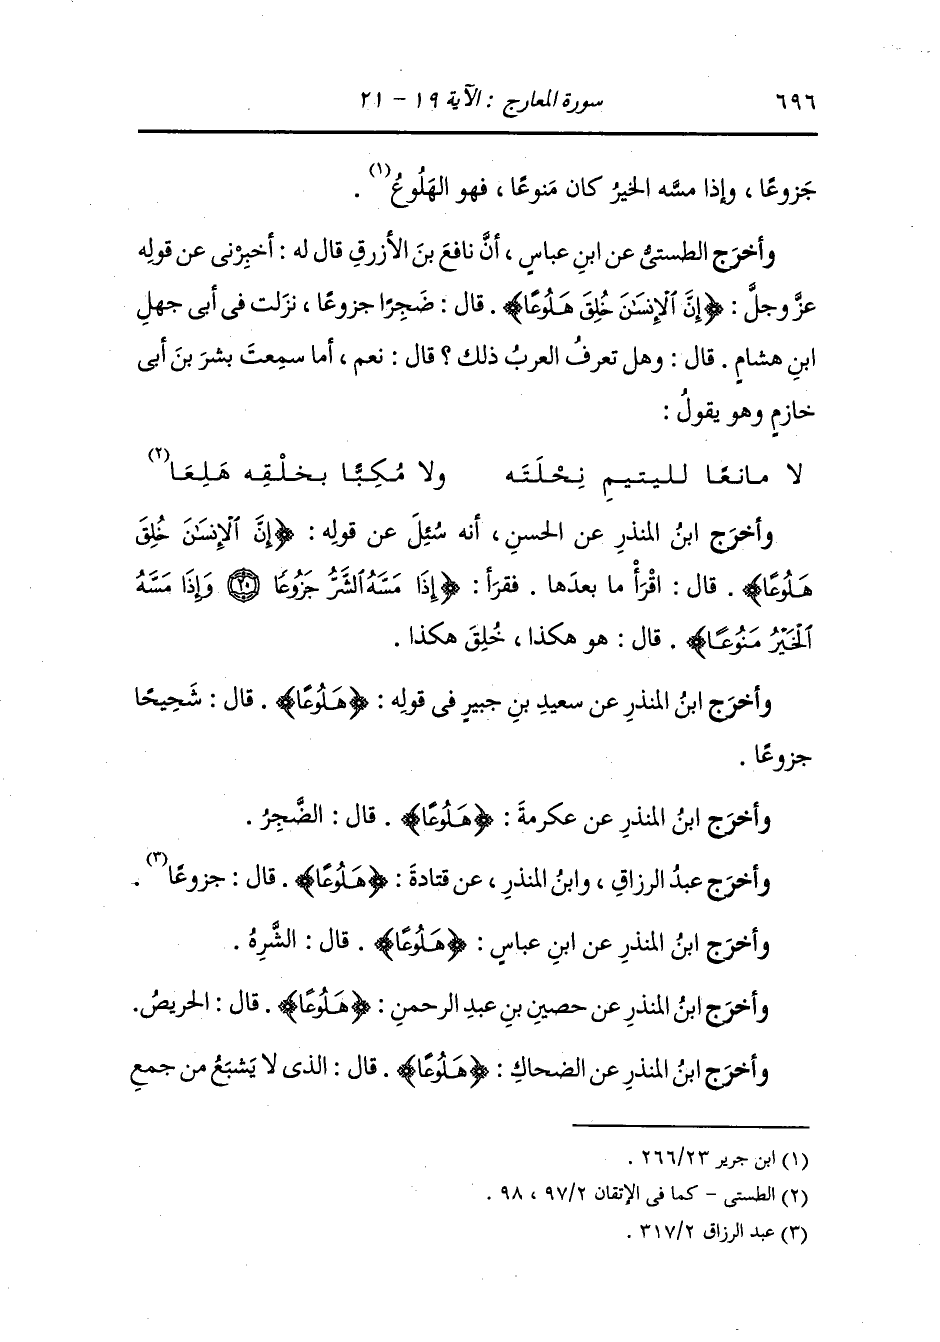 ٦٩٦
سورة المعارج : الآية ١٩ - ٢١
جَزوعًا ، وإذا مسَّه الخيرُ كان مَنوعًا ، فهو الهَلُوعُ(١) .
وأخرَج الطستىُّ عن ابنِ عباسٍ ، أنَّ نافعَ بنَ الأزرقِ قال له : أخبِرْنى عن قولِه
عزَّ وجلَّ : ﴿إِنَّ ٱلْإِنسَٰنَ خُلِقَ هَلُوعًا﴾ . قال : ضَجِرًا جزوعًا ، نزَلت فى أبى جهلِ
ابنِ هشامٍ . قال : وهل تعرفُ العربُ ذلك ؟ قال : نعم ، أما سمِعتَ بشرَ بنَ أبى
خازمٍ وهو يقولُ :
لا مانعًا لليتيمِ نِحْلَتَه ولا مُكِبًّا بخلْقِه هَلِعَا(٢)
وأخرَج ابنُ المنذرِ عن الحسنِ ، أنه سُئِلَ عن قولِه : ﴿إِنَّ ٱلْإِنسَٰنَ خُلِقَ
هَلُوعًا﴾ . قال : اقْرَأْ ما بعدَها . فقرَأ : ﴿إِذَا مَسَّهُ ٱلشَّرُّ جَزُوعًا ۝٢٠ وَإِذَا مَسَّهُ
ٱلْخَيْرُ مَنُوعًا﴾ . قال : هو هكذا ، خُلِقَ هكذا .
وأخرَج ابنُ المنذرِ عن سعيدِ بنِ جبيرٍ فى قولِه : ﴿هَلُوعًا﴾ . قال : شَحِيحًا
جزوعًا .
وأخرَج ابنُ المنذرِ عن عكرمةَ : ﴿هَلُوعًا﴾ . قال : الضَّجِرُ .
وأخرَج عبدُ الرزاقِ ، وابنُ المنذرِ ، عن قتادةَ : ﴿هَلُوعًا﴾ . قال : جزوعًا(٣) .
وأخرَج ابنُ المنذرِ عن ابنِ عباسٍ : ﴿هَلُوعًا﴾ . قال : الشَّرِهُ .
وأخرَج ابنُ المنذرِ عن حصينِ بنِ عبدِ الرحمنِ : ﴿هَلُوعًا﴾ . قال : الحريصُ.
وأخرَج ابنُ المنذرِ عن الضحاكِ : ﴿هَلُوعًا﴾ . قال : الذى لا يَشبَعُ من جمعِ
(١) ابن جرير ٢٦٦/٢٣ .
(٢) الطستى - كما فى الإتقان ٩٧/٢ ، ٩٨ .
(٣) عبد الرزاق ٣١٧/٢ .